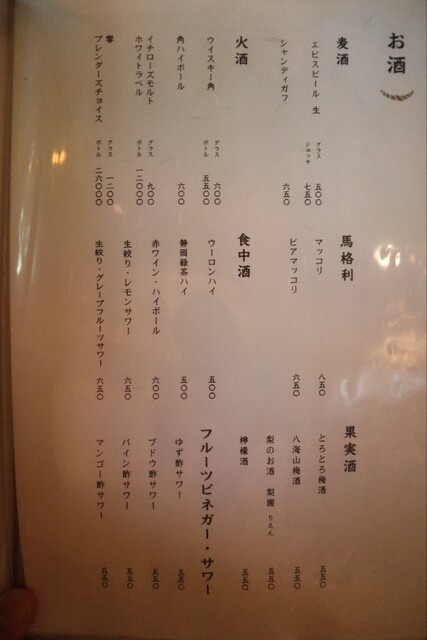 お酒
麦酒
エビスビール 生
グラス 五〇〇
ジョッキ 七五〇
シャンディガフ 六五〇
火酒
ウイスキー角
グラス 六〇〇
ボトル 五五〇〇
角ハイボール 六〇〇
イチローズモルト
ホワイトラベル
グラス 九〇〇
ボトル 一二〇〇〇
響
ブレンダーズチョイス
グラス 一二〇〇
ボトル 二六〇〇〇
馬格利
マッコリ 八五〇
ビアマッコリ 六五〇
食中酒
ウーロンハイ 五〇〇
静岡緑茶ハイ 五〇〇
赤ワイン・ハイボール 六〇〇
生絞り・レモンサワー 六五〇
生絞り・グレープフルーツサワー 六五〇
果実酒
とろとろ梅酒 五五〇
八海山梅酒 五五〇
梨のお酒 梨園 りえん 五五〇
檸檬酒 五五〇
フルーツビネガー・サワー
ゆず酢サワー 五五〇
ブドウ酢サワー 五五〇
パイン酢サワー 五五〇
マンゴー酢サワー 五五〇